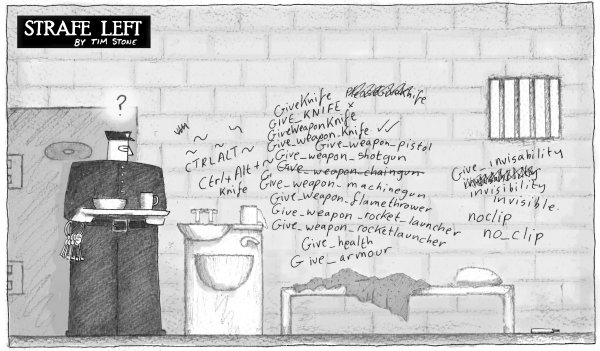 STRAFE LEFT
BY TIM STONE
?
~ ~
CTRLALT~
Ctrl+Alt+~
Knife
GiveKnife
GIVE_KNIFE x
GiveWeaponKnife
Give_weapon_Knife ✓✓
Give_weapon_pistol
Give_weapon_shotgun
Give_weapon_chaingun
Give_weapon_machinegun
Give_weapon_flamethrower
Give_weapon_rocket_launcher
Give_weapon_rocketlauncher
Give_health
Give_armour
Give_invisability
invisibility
invisible.
noclip
no_clip